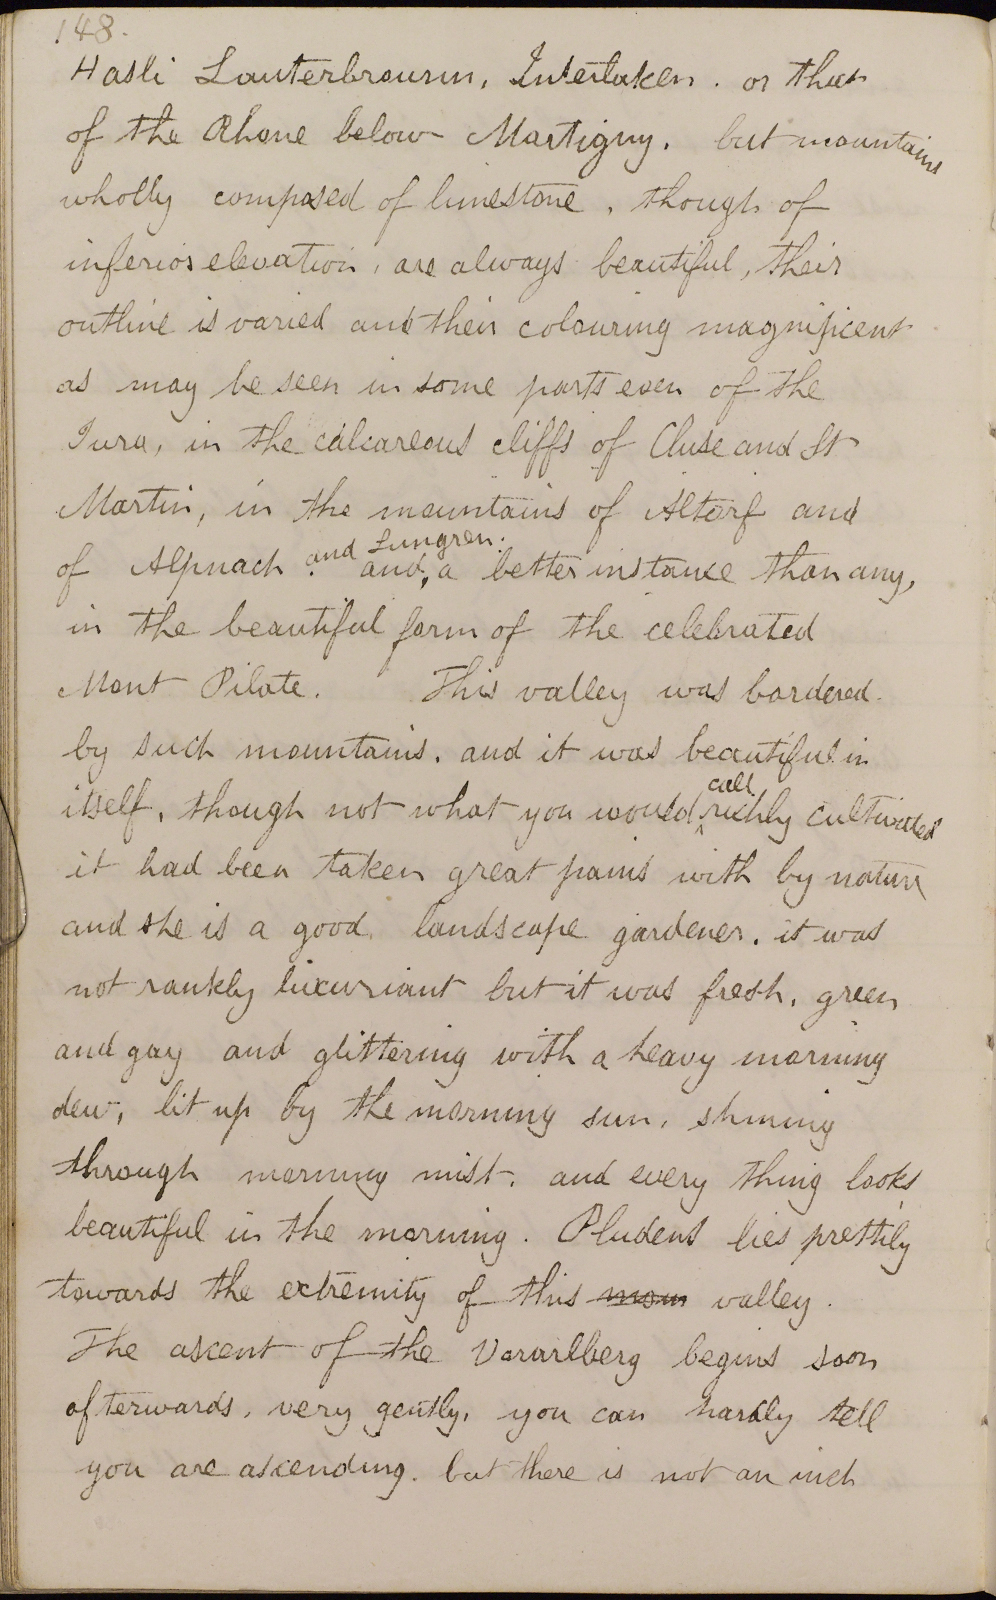 148.
Hasli Lauterbrounn, Interlaken. or that
of the Rhone below Martigny. but mountains
wholly composed of limestone, though of
inferior elevation, are always beautiful, their
outline is varied and their colouring magnificent
as may be seen in some parts even of the
Jura, in the calcareous cliffs of Cluse and St
Martin, in the mountains of Altorf and
of Alpnach and Lungren. and, a better instance than any,
in the beautiful form of the celebrated
Mont Pilate. This valley was bordered
by such mountains. and it was beautiful in
itself, though not what you would call richly cultivated
it had been taken great pains with by nature
and she is a good landscape gardener. it was
not rankly luxuriant but it was fresh, green
and gay and glittering with a heavy morning
dew, lit up by the morning sun, shining
through morning mist. and every thing looks
beautiful in the morning. Pludens lies prettily
towards the extremity of this moun valley.
The ascent of the Vorarlberg begins soon
afterwards, very gently, you can hardly tell
you are ascending. but there is not an inch